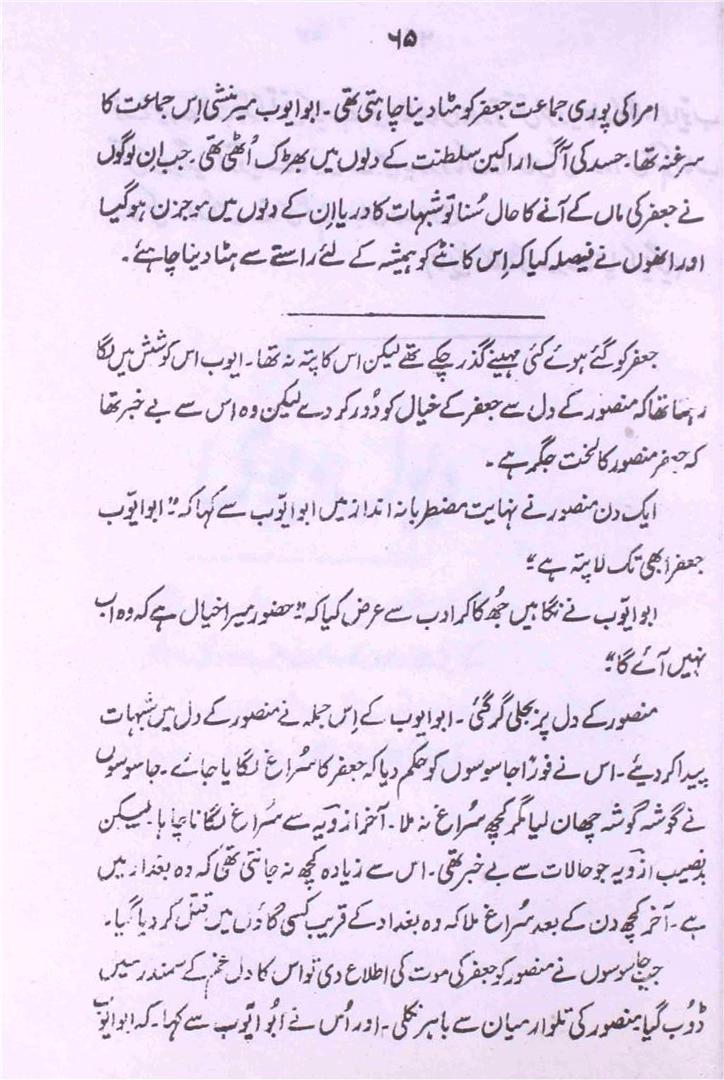 ۶۵
امرا کی پوری جماعت جعفر کو مٹا دینا چاہتی تھی۔ ابو ایوب میر منشی اس جماعت کا
سرغنہ تھا۔ حسد کی آگ اراکین سلطنت کے دلوں میں بھڑک اُٹھی تھی۔ جب اِن لوگوں
نے جعفر کی ماں کے آنے کا حال سُنا تو شبہات کا دریا اِن کے دلوں میں موجزن ہو گیا
اور انھوں نے فیصلہ کیا کہ اِس کانٹے کو ہمیشہ کے لئے راستے سے ہٹا دینا چاہئے۔
جعفر کو گئے ہوئے کئی مہینے گذر چکے تھے لیکن اس کا پتہ نہ تھا۔ ایوب اس کوشش میں لگا
رہتا تھا کہ منصور کے دل سے جعفر کے خیال کو دُور کر دے لیکن وہ اس سے بے خبر تھا
کہ جعفر منصور کا لخت جگر ہے۔
ایک دن منصور نے نہایت مضطربانہ انداز میں ابو ایوّب سے کہا کہ "ابو ایوّب
جعفر ابھی تک لاپتہ ہے"
ابو ایوّب نے نگاہیں جُھکا کر ادب سے عرض کیا کہ "حضور میرا خیال ہے کہ وہ اب
نہیں آئے گا"
منصور کے دل پر بجلی گر گئی۔ ابو ایوب کے اِس جملہ نے منصور کے دل میں شبہات
پیدا کر دیئے۔ اس نے فوراً جاسوسوں کو حکم دیا کہ جعفر کا سُراغ لگایا جائے۔ جاسوسوں
نے گوشہ گوشہ چھان لیا مگر کچھ سُراغ نہ ملا۔ آخر ازویہ سے سُراغ لگانا چاہا لیکن
بدنصیب ازویہ جو حالات سے بے خبر تھی۔ اس سے زیادہ کچھ نہ جانتی تھی کہ وہ بغداد میں
ہے۔ آخر کچھ دن کے بعد سُراغ ملا کہ وہ بغداد کے قریب کسی گاؤں میں قتل کر دیا گیا۔
جب جاسوسوں نے منصور کو جعفر کی موت کی اطلاع دی تو اس کا دل غم کے سمندر میں
ڈوب گیا منصور کی تلوار میان سے باہر نکلی۔ اور اُس نے ابُو ایوّب سے کہا۔ کہ ابو ایوّب